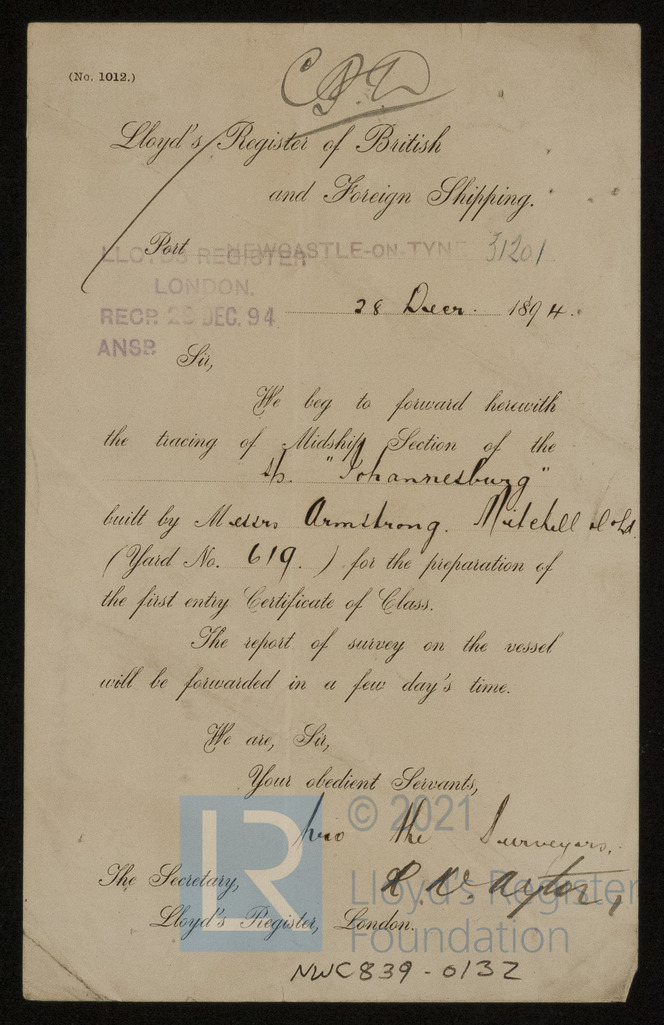 (No. 1012.)
Lloyd's Register of British
and Foreign Shipping.
Port NEWCASTLE-ON-TYNE 31201
LLOYD'S REGISTER
LONDON.
28 Decr. 1894.
RECD 29 DEC. 94
ANSD
Sir,
We beg to forward herewith
the tracing of Midship Section of the
"Johannesburg"
built by Messrs Armstrong. Mitchell & Co Ld.
(Yard No. 619.) for the preparation of
the first entry Certificate of Class.
The report of survey on the vessel
will be forwarded in a few day's time.
We are, Sir,
Your obedient Servants,
© 2021
pro the Surveyors.
The Secretary,
Lloyd's Register
Lloyd's Register, London.
Foundation
LR
NWC839-0132